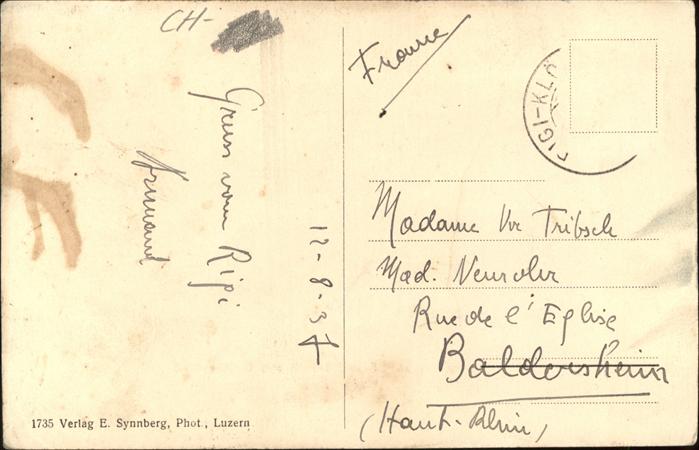 CH-
Gruss vom Rigi
Armand
12-8-37
1735 Verlag E. Synnberg, Phot., Luzern
France
RIGI-KLÖ
Madame Vve Tribsch
Mad.
Rue de l'Eglise
Baldersheim
(Haut-Rhin)